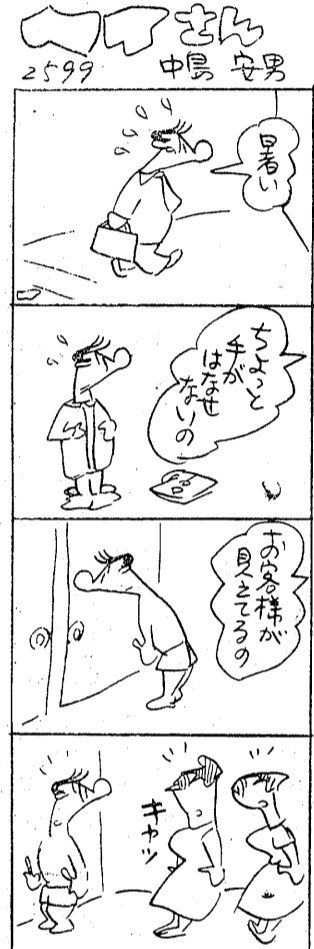 さん
2599
中島 安男
暑い
ちょっと
手が
はなせ
ないの
お客様が
見えてるの
キャッ